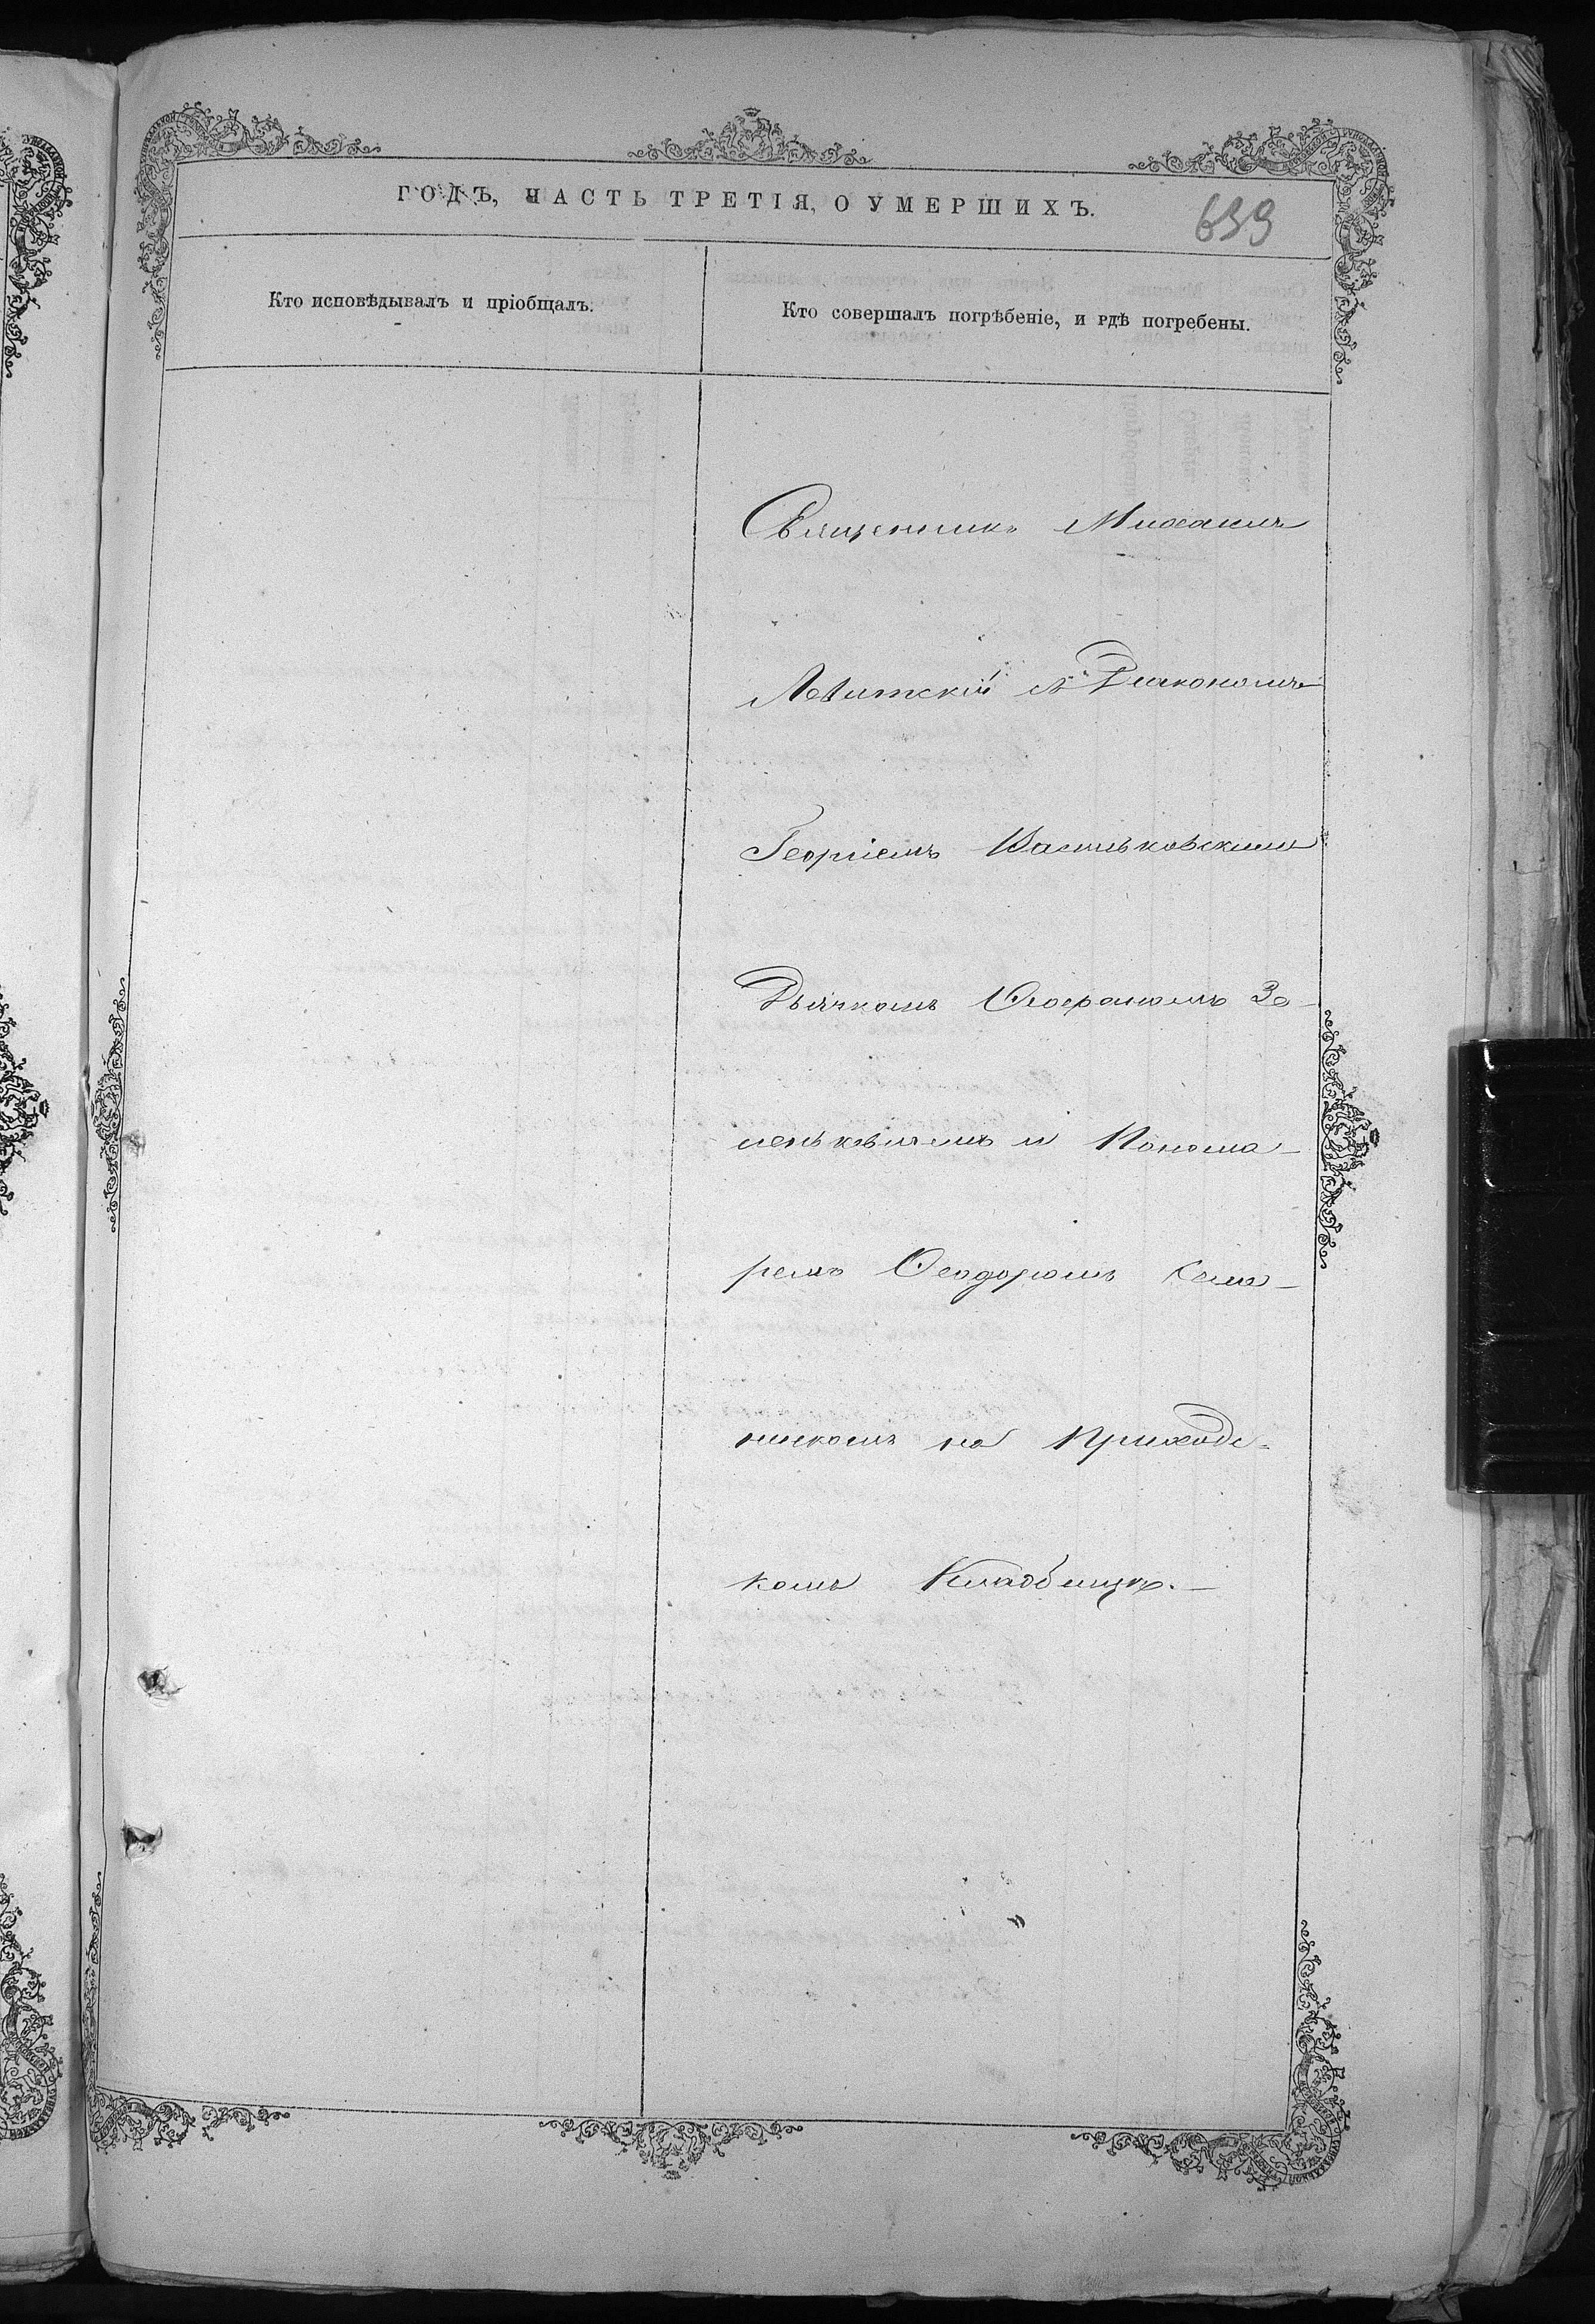 ГОДЪ, ЧАСТЬ ТРЕТІЯ, О УМЕРШИХЪ.
639
Кто исповѣдывалъ и пріобщалъ.
Кто совершалъ погрѣбеніе, и гдѣ погребены.
Священникъ Михаилъ
Левитскій съ Діакономъ
Георгіемъ Васильковскимъ
Дьячкомъ Стефаномъ Зе-
леньквичемъ и Понома-
ремъ Ѳеодоромъ
на Приходс-
комъ Кладбищѣ.